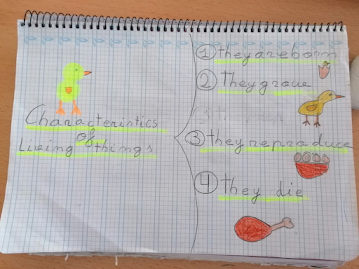 Characteristics
of
Living things
1 they are born
2 They grow
3 they reproduce
4 They die